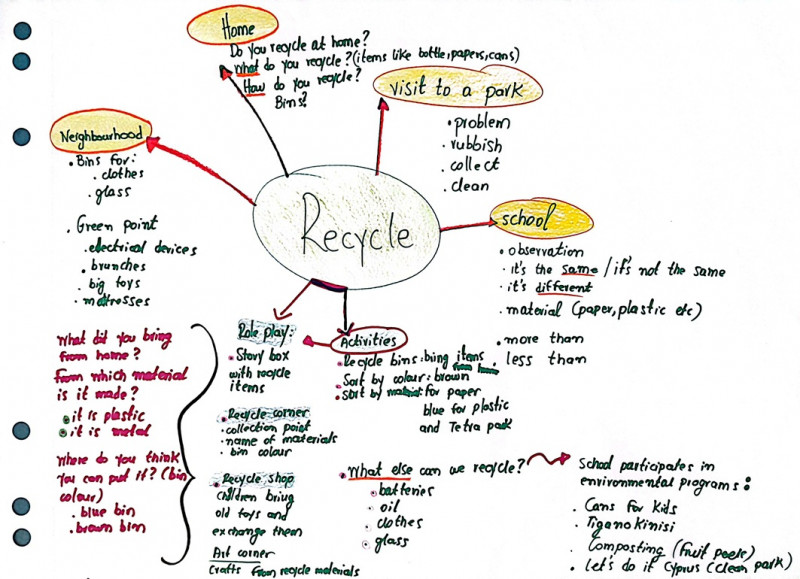 Home
Do you recycle at home?
What do you recycle? (items like bottle, papers, cans)
How do you recycle?
Bins?
visit to a park
• problem
• rubbish
• collect
• clean
Neighbourhood
• Bins for:
• clothes
• glass
• Green point
• electrical devices
• brunches
• big toys
• mattresses
Recycle
school
• observation
• it's the same / it's not the same
• it's different
• material (paper, plastic etc)
• more than
less than
What did you bring
from home?
From which material
is it made?
• it is plastic
• it is metal
Where do you think
you can put it? (bin
colour)
• blue bin
• brown bin
Role play:
• Story box
with recycle
items
• Recycle corner
• collection point
• name of materials
• bin colour
• Recycle shop
children bring
old toys and
exchange them
Art corner
crafts from recycle materials
Activities
• Recycle bins: bring items from home
• Sort by colour: brown
• Sort by material: for paper
blue for plastic
and Tetra pack
• What else can we recycle?
• batteries
• oil
• clothes
• glass
School participates in
environmental programs:
• Cans for Kids
• Tigano Kinisi
• Composting (fruit peels)
• Let's do it Cyprus (clean park)